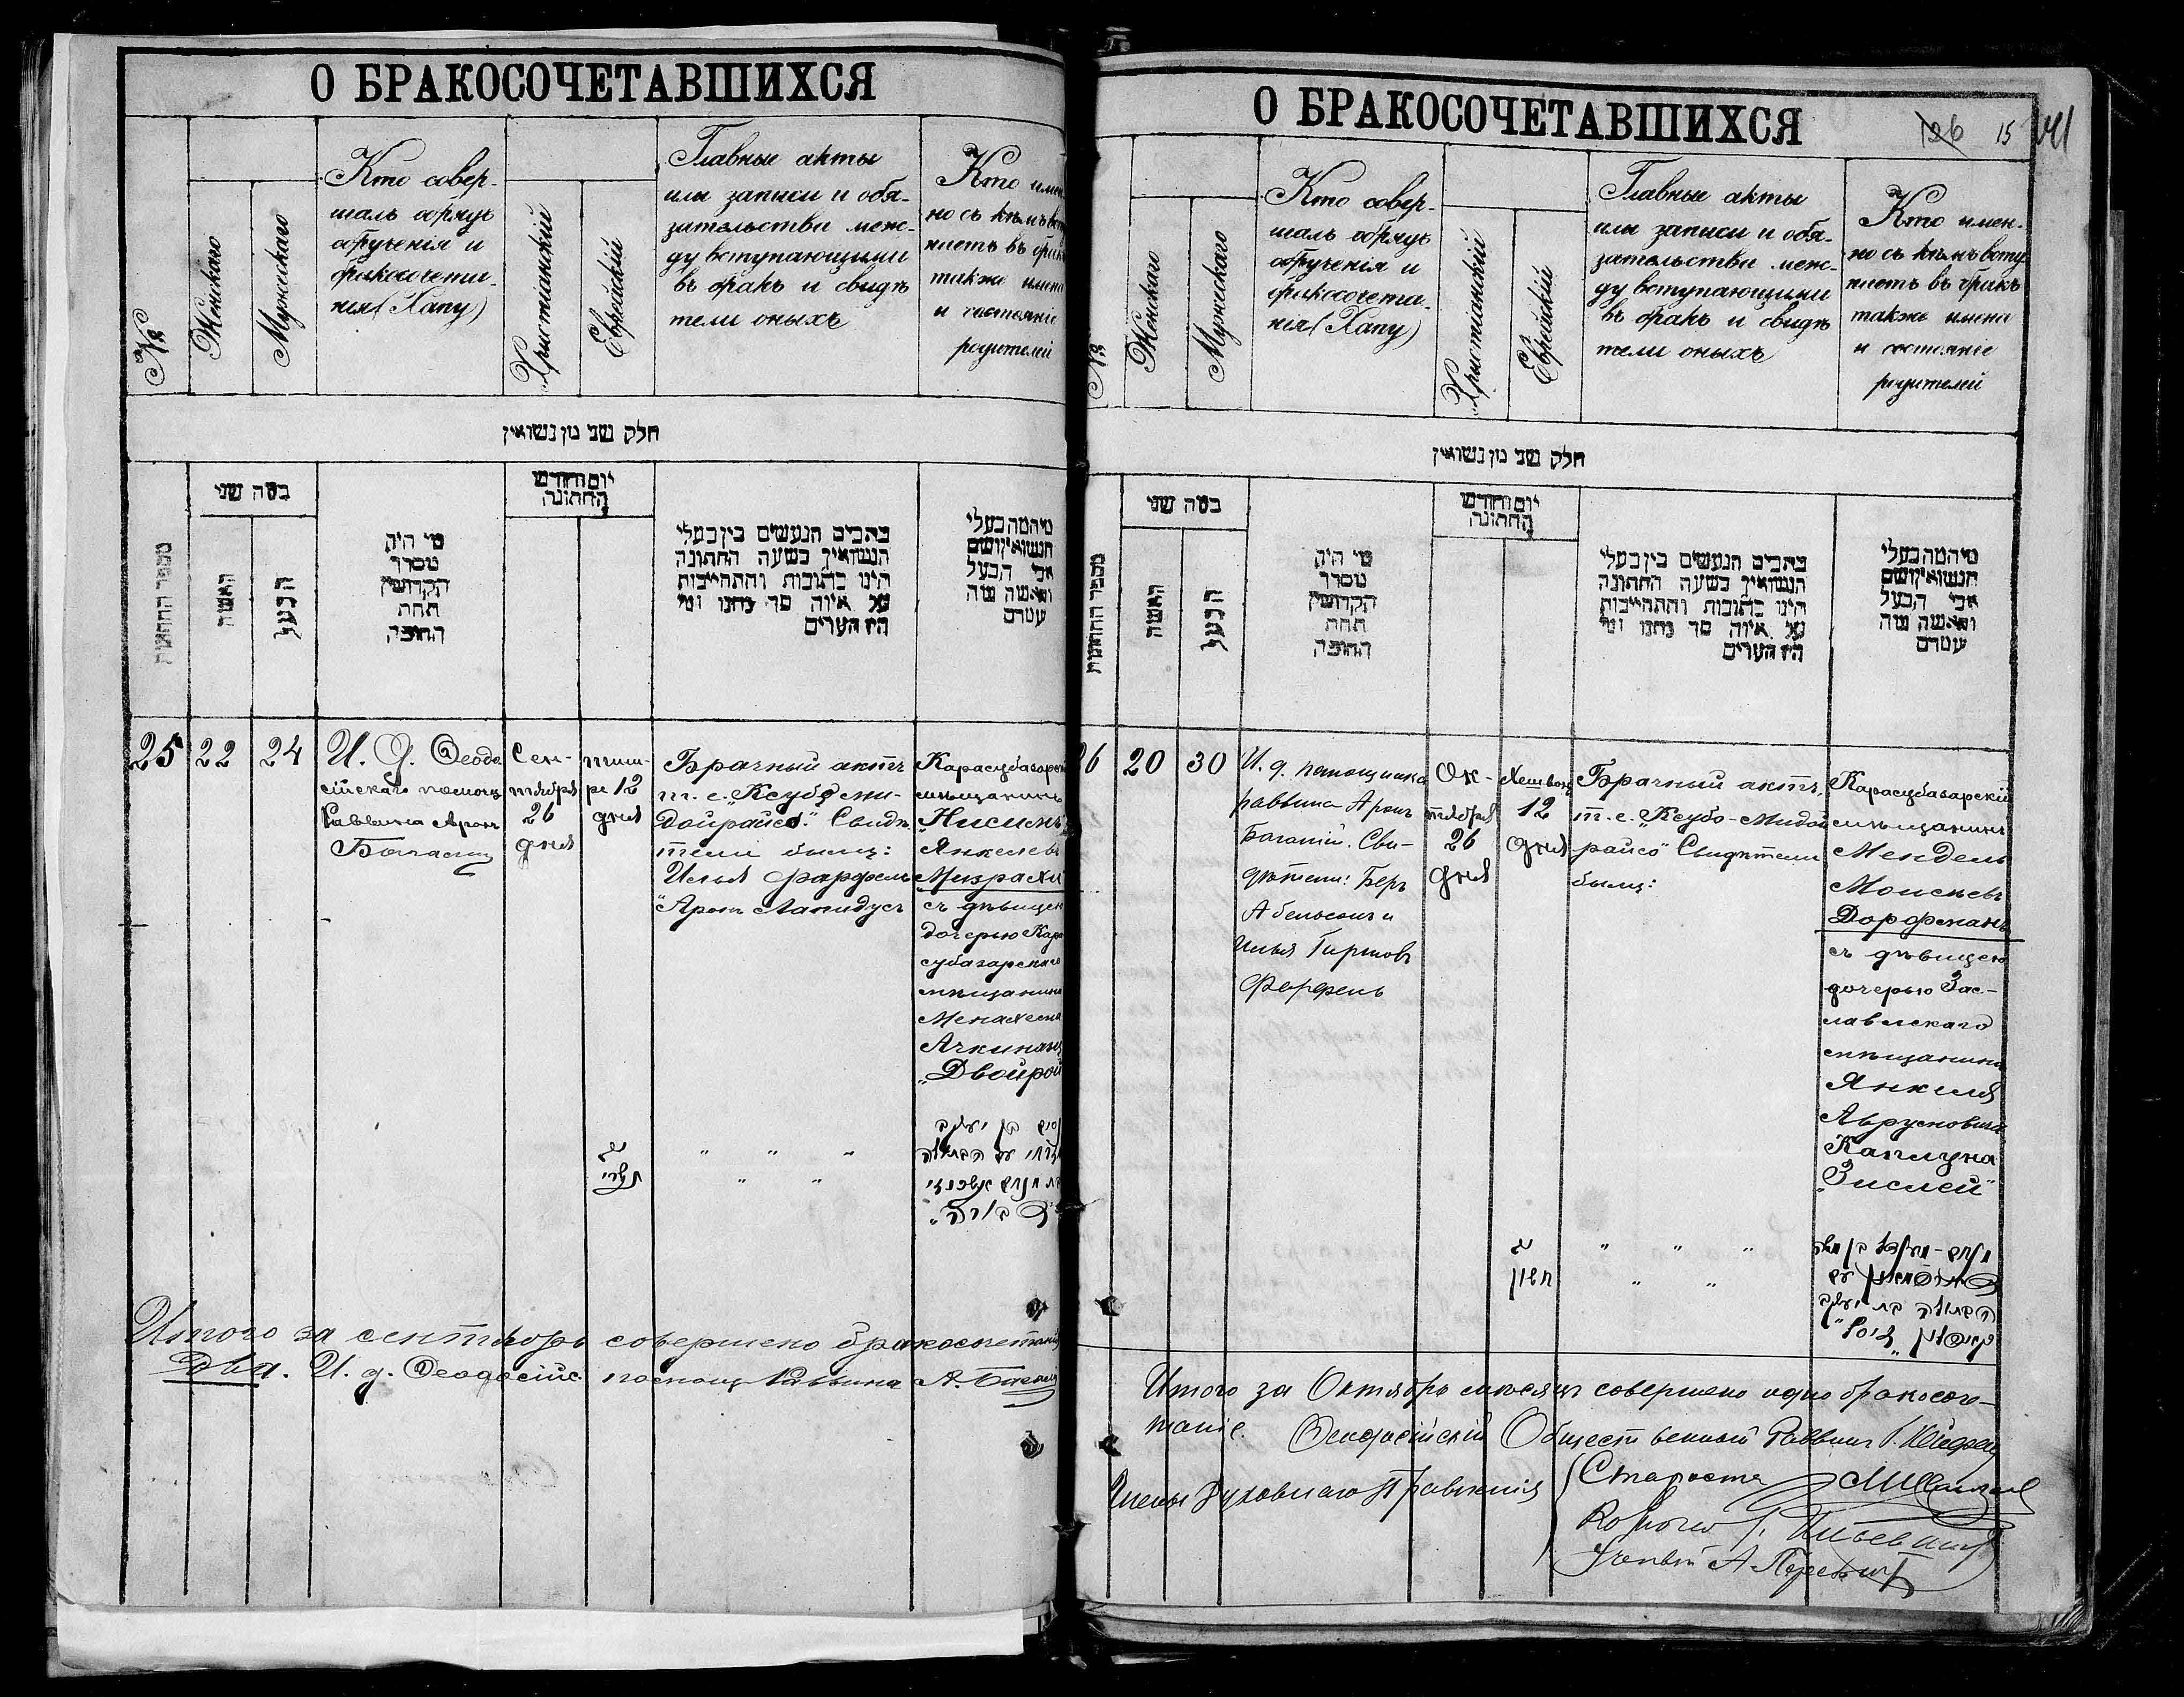 О БРАКОСОЧЕТАВШИХСЯ
№
Женскаго
Мужескаго
Кто совер-
шалъ обрядъ
обрученія и
бракосочета-
нія (Хапу)
Христіанскій
Еврейскій
Главные акты
или записи и обя-
зательства меж-
ду вступающими
въ бракъ и свидѣ
тели оныхъ
Кто имен
но съ кѣмъ всту
паетъ въ бракъ
также имена
и состояніе
родителей
חלק שני מן נשואין
מספר החתונות
במה שני
האשה
הבעל
מי היה
מסדר
הקדושין
תחת
החופה
יום וחודש
החתונה
כתבים הנעשים בין בעלי
הנשואין בשעה החתונה
היינו כתובות והתחייבות
על איזה סך נתנו ומי
היו העדים
מי המה בעלי
הנשואין ושם
אבי הבעל
והאשה
25
22
24
И. Д. Ѳеодо
сійскаго помощ
Раввина Аронъ
Сен-
тября
26
дня
тиш-
ре 12
дня
Брачный актъ
т. е. "Ксубо ми-
дойрайсо." Свидѣ
тели былы:
Илья Фарфель
Аронъ Лапидусъ
Карасубазарскій
мѣщанинъ
"Нисимъ
Янкелевъ
Мизрахи
съ дѣвицею
дочерью Кара
субазарскаго
мѣщанина
Менахема
Ашкинази
"Двойрой
יב
תשרי
" " "
" "
נסים בן יעקב
מזרחי עם הבתולה
בת מנחם אשכנזי
דבורה"
Итого за сентябрь совершено бракосочетаній
Два. И. д. Ѳеодосійс. помощ Раввина А.
О БРАКОСОЧЕТАВШИХСЯ
126 15
141
№
Женскаго
Мужескаго
Кто совер-
шалъ обрядъ
обрученія и
бракосочета-
нія (Хапу)
Христіанскій
Еврейскій
Главные акты
или записи и обя-
зательства меж-
ду вступающими
въ бракъ и свидѣ
тели оныхъ
Кто имен-
но съ кѣмъ всту
паетъ въ бракъ
также имена
и состояніе
родителей
חלק שני מן נשואין
מספר החתונות
במה שני
האשה
הבעל
מי היה
מסדר
הקדושין
תחת
החופה
יום וחודש
החתונה
כתבים הנעשים בין בעלי
הנשואין בשעה החתונה
היינו כתובות והתחייבות
על איזה סך נתנו ומי
היו העדים
מי המה בעלי
הנשואין ושם
אבי הבעל
והאשה
26
20
30
И. д. помощника
раввина Аронъ
Богатый. Сви-
дѣтели: Беръ
Абельсонъ и
Илья Гиршовъ
Фарфель
Ок-
тября
26
дня
Хешванъ
12
дня
Брачный актъ,
т. е. "Ксубо-Мидой
райсо" Свидѣтели
былы:
Карасубазарскій
мѣщанинъ
Мендель
Моисеевъ
Дорфманъ
съ дѣвицею
дочерью Зас-
лавльскаго
мѣщанина
Янкиля
Каплуна
"Зислей"
יב
חשון
" " "
" "
מנחם-מענדל בן משה
דארפמאן עם
הבתולה בת יעקב
קאפלון "זיסל"
Итого за Октябрь мѣсяцъ совершено одно бракосоче-
таніе. Ѳеодосійскій Общественный Раввинъ
Члены Духовнаго Правленія
Староста
Ученый А.